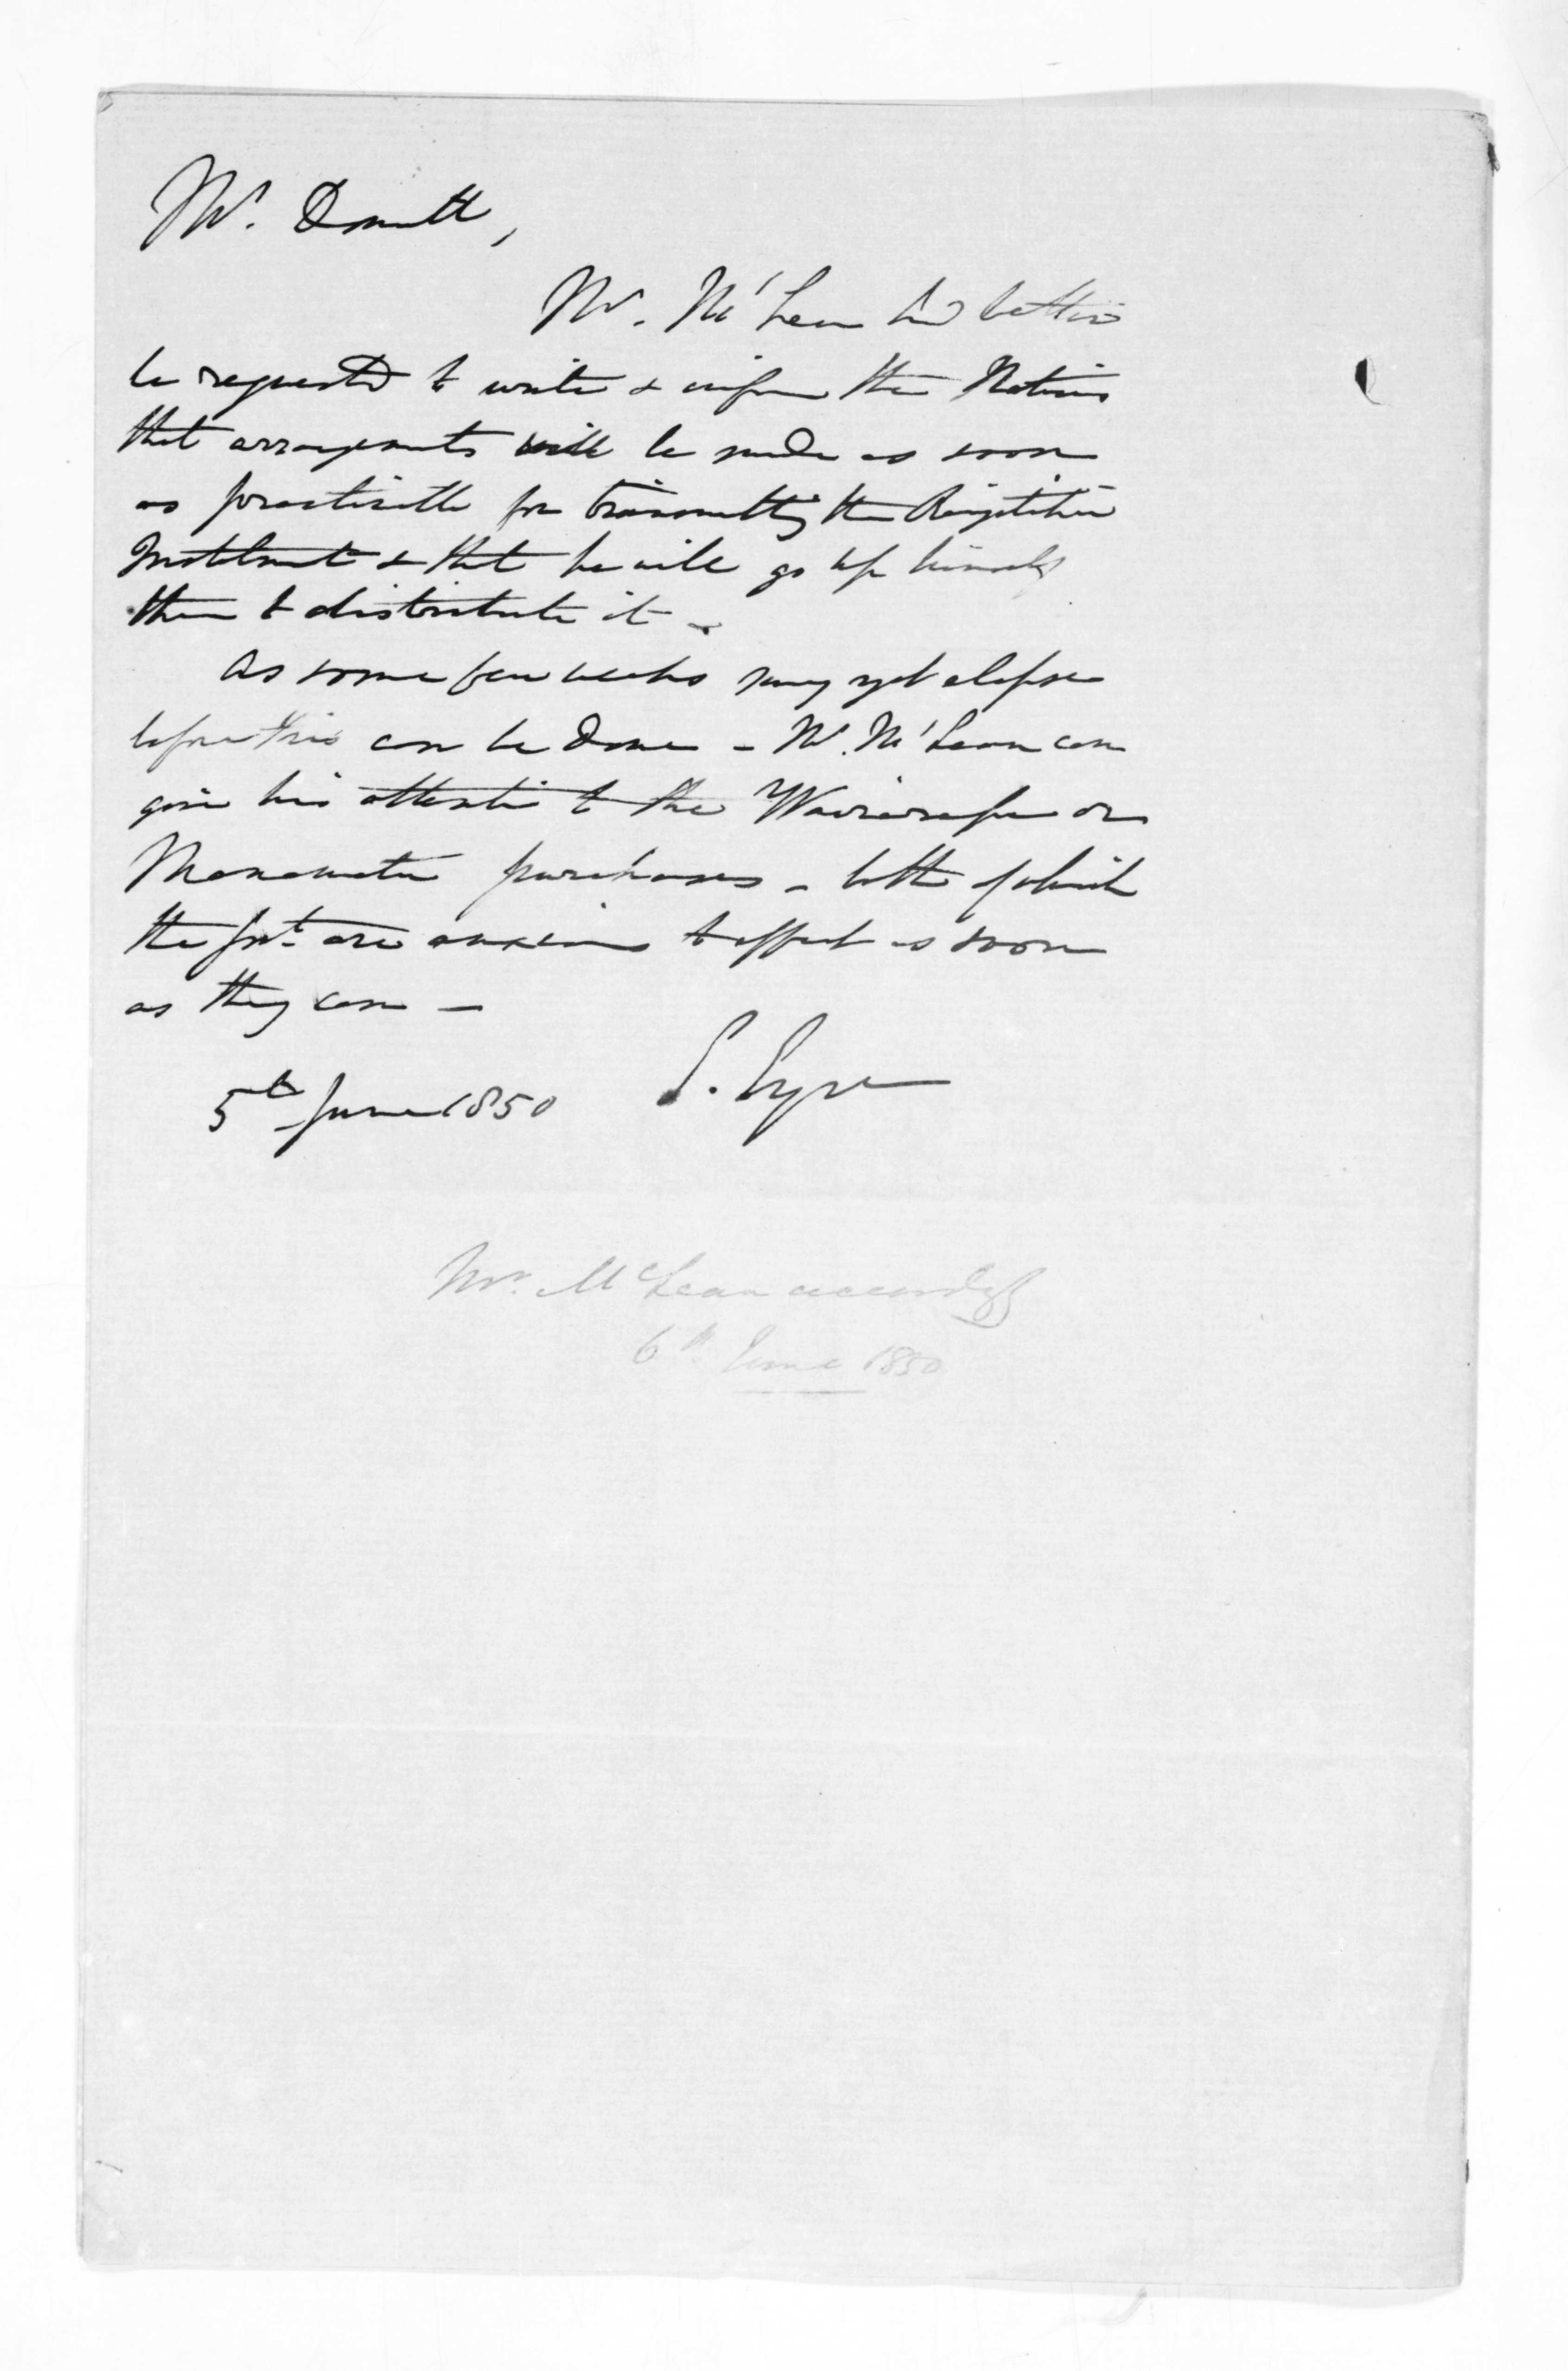 Mr. Domett,
Mr. McLean had better
be requested to write & inform the Natives
that arrangements will be made as soon
as practicable for transmitting the Rangitikei
Instalment & that he will go up himself
then to distribute it -
As some few weeks may yet elapse
before this can be done - Mr. McLean can
give his attention to the Wairarapa or
Manawatu purchases - both of which
the Govt. are anxious to effect as soon
as they can -
5th June 1850 E. Eyre
Mr. McLean accordgly
6th June 1850